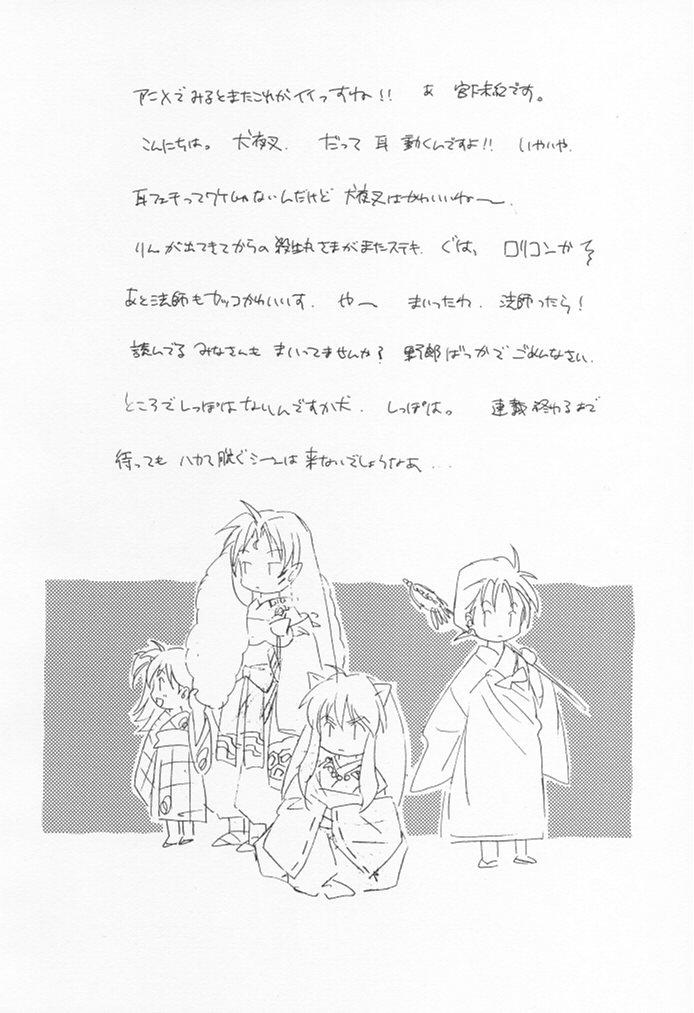 アニメでみるとまたこれがイイっすね!! あ 宮下未紀です。
こんにちは。 犬夜叉. だって 耳 動くんですよ!! いやいや.
耳フェチってワケじゃないんだけど 犬夜叉はかわいいねー.
りんが出てきてからの殺生丸さまがまたステキ. ぐはっ ロリコンかそ〜
あと法師もカッコかわいいす. やー まいったわ. 法師ったら!
読んでる みなさんも まいってませんか? 野郎ばっかでごめんなさい.
ところでしっぽはないんですか犬. しっぽは。 連載終わるまで
待っても ハカマ脱ぐシーンは来ないでしょうなあ...